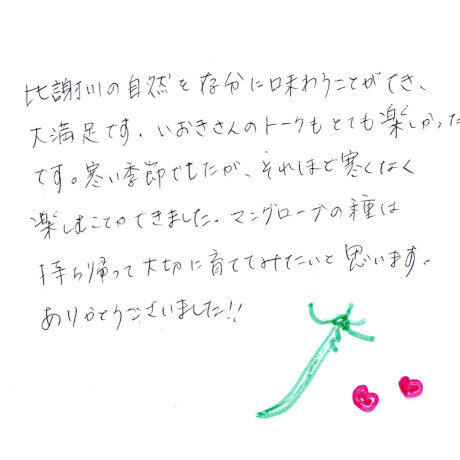 比謝川の自然を存分に味わうことができ、
大満足です。いおきさんのトークもとても楽しかった
です。寒い季節でしたが、それほど寒くなく
楽しむことができました。マングローブの種は
持ち帰って大切に育ててみたいと思います。
ありがとうございました!!